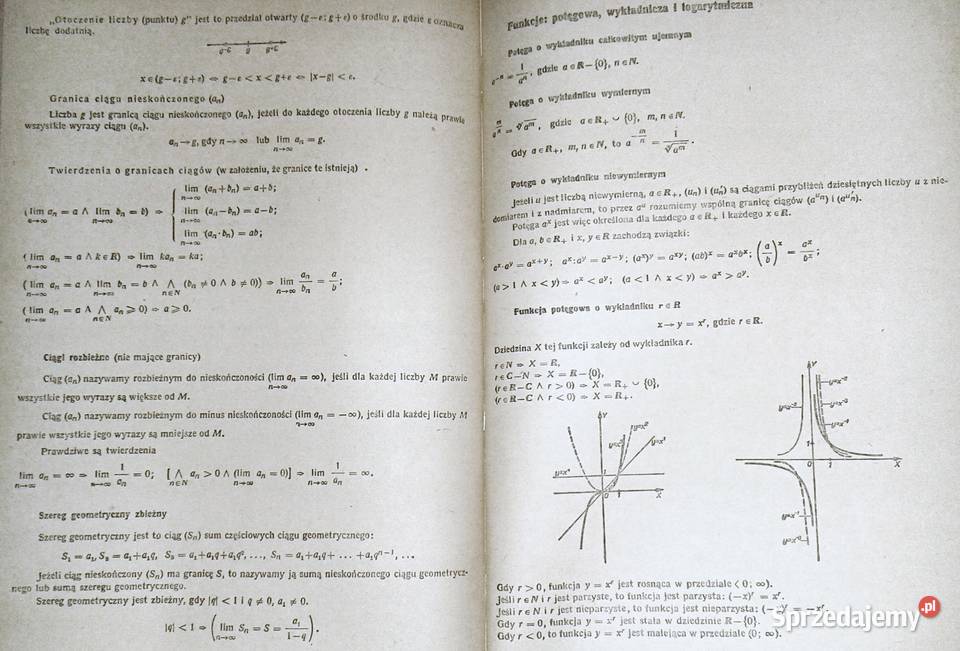 „Otoczenie liczby (punktu) g” jest to przedział otwarty (g−ε; g+ε) o środku g, gdzie ε oznacza
liczbę dodatnią.
g-ε g g+ε
x∈(g−ε; g+ε) ⇔ g−ε < x < g+ε ⇔ |x−g| < ε.
Granica ciągu nieskończonego (aₙ)
Liczba g jest granicą ciągu nieskończonego (aₙ), jeżeli do każdego otoczenia liczby g należą prawie
wszystkie wyrazy ciągu (aₙ).
aₙ→g, gdy n→∞ lub lim aₙ = g.
n→∞
Twierdzenia o granicach ciągów (w założeniu, że granice te istnieją) .
lim (aₙ+bₙ) = a+b;
n→∞
(lim aₙ = a ∧ lim bₙ = b) ⇒ lim (aₙ−bₙ) = a−b;
n→∞ n→∞ n→∞
lim (aₙ·bₙ) = ab;
n→∞
(lim aₙ = a ∧ k∈R) ⇒ lim kaₙ = ka;
n→∞ n→∞
(lim aₙ = a ∧ lim bₙ = b ∧ ⋀ (bₙ ≠ 0 ∧ b ≠ 0)) ⇒ lim aₙ/bₙ = a/b;
n→∞ n→∞ n∈N n→∞
(lim aₙ = a ∧ ⋀ aₙ ⩾ 0) ⇒ a ⩾ 0.
n→∞ n∈N
Ciągi rozbieżne (nie mające granicy)
Ciąg (aₙ) nazywamy rozbieżnym do nieskończoności (lim aₙ = ∞), jeśli dla każdej liczby M prawie
n→∞
wszystkie jego wyrazy są większe od M.
Ciąg (aₙ) nazywamy rozbieżnym do minus nieskończoności (lim aₙ = −∞), jeśli dla każdej liczby M
n→∞
prawie wszystkie jego wyrazy są mniejsze od M.
Prawdziwe są twierdzenia
lim aₙ = ∞ ⇒ lim 1/aₙ = 0; [⋀ aₙ > 0 ∧ (lim aₙ = 0)] ⇒ lim 1/aₙ = ∞.
n→∞ n→∞ n∈N n→∞ n→∞
Szereg geometryczny zbieżny
Szereg geometryczny jest to ciąg (Sₙ) sum częściowych ciągu geometrycznego:
S₁ = a₁, S₂ = a₁+a₁q, S₃ = a₁+a₁q+a₁q², ..., Sₙ = a₁+a₁q+ ... +a₁qⁿ⁻¹, ...
Jeżeli ciąg nieskończony (Sₙ) ma granicę S, to nazywamy ją sumą nieskończonego ciągu geometrycz-
nego lub sumą szeregu geometrycznego.
Szereg geometryczny jest zbieżny, gdy |q| < 1 i q ≠ 0, a₁ ≠ 0.
|q| < 1 ⇒ (lim Sₙ = S = a₁/(1−q)).
n→∞
Funkcje: potęgowa, wykładnicza i logarytmiczna
Potęga o wykładniku całkowitym ujemnym
a⁻ⁿ = 1/aⁿ, gdzie a∈R−{0}, n∈N.
Potęga o wykładniku wymiernym
a^(m/n) = ⁿ√aᵐ, gdzie a∈R₊ ∪ {0}, m, n∈N.
Gdy a∈R₊, m, n∈N, to a^(−m/n) = 1/ⁿ√aᵐ.
Potęga o wykładniku niewymiernym
Jeżeli u jest liczbą niewymierną, a∈R₊, (uₙ) i (u′ₙ) są ciągami przybliżeń dziesiętnych liczby u z nie-
domiarem i z nadmiarem, to przez aᵘ rozumiemy wspólną granicę ciągów (a^uₙ) i (a^u′ₙ).
Potęga aˣ jest więc określona dla każdego a∈R₊ i każdego x∈R.
Dla a, b∈R₊ i x, y∈R zachodzą związki:
aˣ·aʸ = aˣ⁺ʸ; aˣ:aʸ = aˣ⁻ʸ; (aˣ)ʸ = aˣʸ; (ab)ˣ = aˣbˣ; (a/b)ˣ = aˣ/bˣ;
(a > 1 ∧ x < y) ⇒ aˣ < aʸ; (a < 1 ∧ x < y) ⇒ aˣ > aʸ.
Funkcja potęgowa o wykładniku r∈R
x→y = xʳ, gdzie r∈R.
Dziedzina X tej funkcji zależy od wykładnika r.
r∈N ⇒ X = R,
r∈C−N ⇒ X = R−{0},
(r∈R−C ∧ r > 0) ⇒ X = R₊ ∪ {0},
(r∈R−C ∧ r < 0) ⇒ X = R₊.
Y
y=x³
y=x²
y=x¹
y=x⁰
1
0 1 X
Y
y=x⁻²
y=x⁻¹
1
0 1 X
y=x⁻¹
y=x⁻³
Gdy r > 0, funkcja y = xʳ jest rosnąca w przedziale ⟨0; ∞).
Jeśli r∈N i r jest parzyste, to funkcja jest parzysta: (−x)ʳ = xʳ.
Jeśli r∈N i r jest nieparzyste, to funkcja jest nieparzysta: (−x)ʳ = −xʳ.
Gdy r = 0, funkcja y = xʳ jest stała w dziedzinie R−{0}.
Gdy r < 0, to funkcja y = xʳ jest malejąca w przedziale (0; ∞).
Sprzedajemy.pl